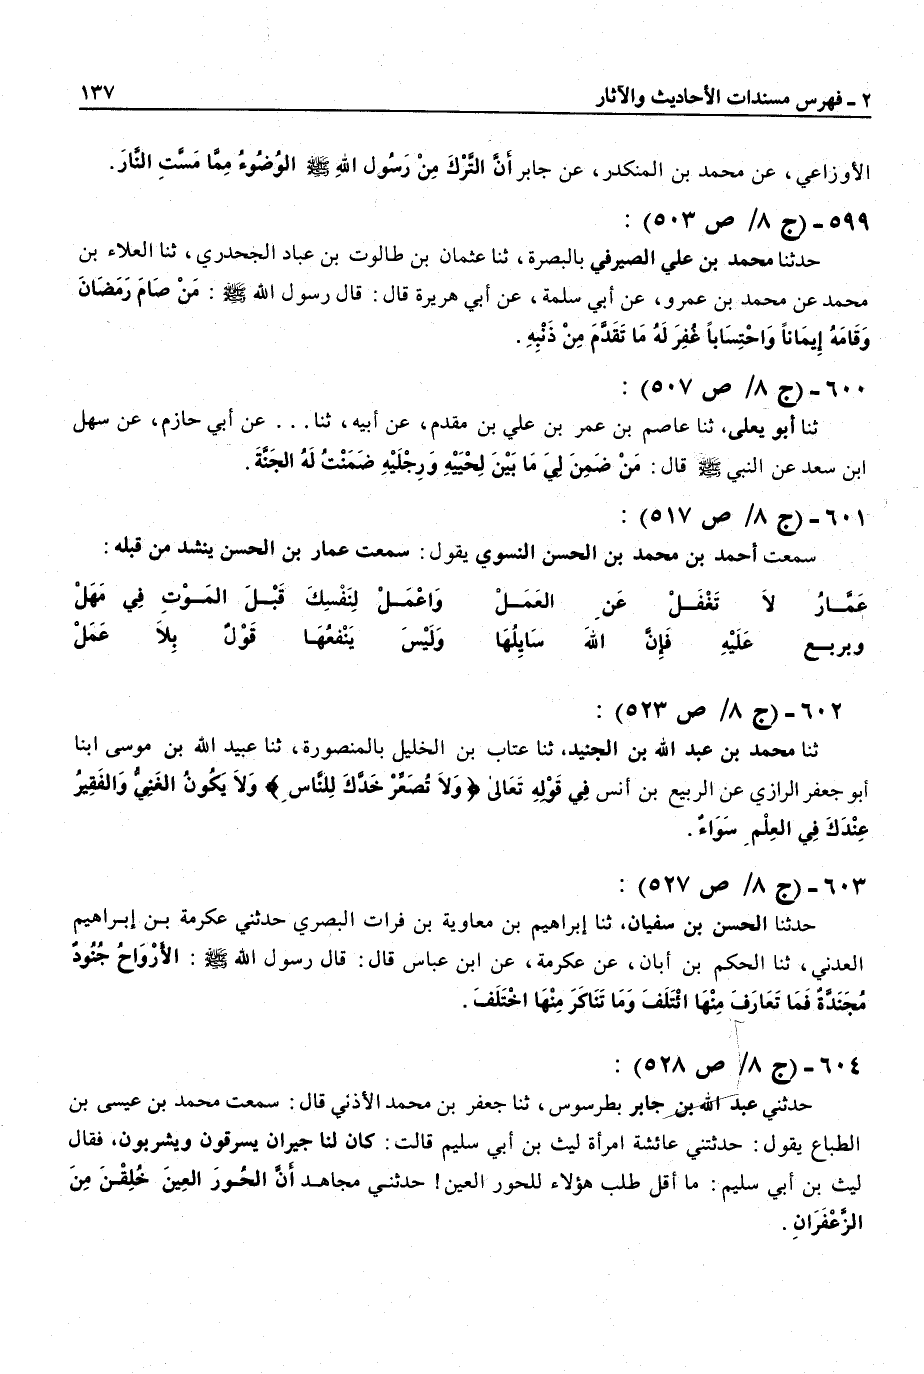 ٢ - فهرس مسندات الأحاديث والآثار ١٣٧
الأوزاعي، عن محمد بن المنكدر، عن جابر أَنَّ التَّرْكَ مِنْ رَسُولِ اللهِ ﷺ الوُضُوءُ مِمَّا مَسَّتِ النَّارَ.
٥٩٩ - (ج ٨/ ص ٥٠٣) :
حدثنا محمد بن علي الصيرفي بالبصرة، ثنا عثمان بن طالوت بن عباد الجحدري، ثنا العلاء بن
محمد عن محمد بن عمرو، عن أبي سلمة، عن أبي هريرة قال: قال رسول الله ﷺ : مَنْ صَامَ رَمَضَانَ
وَقَامَهُ إِيمَاناً وَاحْتِسَاباً غُفِرَ لَهُ مَا تَقَدَّمَ مِنْ ذَنْبِهِ.
٦٠٠ - (ج ٨/ ص ٥٠٧) :
ثنا أبو يعلى، ثنا عاصم بن عمر بن علي بن مقدم، عن أبيه، ثنا... عن أبي حازم، عن سهل
ابن سعد عن النبي ﷺ قال: مَنْ ضَمِنَ لِيَ مَا بَيْنَ لِحْيَيْهِ وَرِجْلَيْهِ ضَمَنْتُ لَهُ الجَنَّةَ.
٦٠١ - (ج ٨/ ص ٥١٧) :
سمعت أحمد بن محمد بن الحسن النسوي يقول: سمعت عمار بن الحسن ينشد من قبله:
عَمَّـارُ لاَ تَغْفَـلْ عَنِ العَمَـلْ وَاعْمَـلْ لِنَفْسِكَ قَبْـلَ المَـوْتِ فِي مَهَلْ
ويربـع عَلَيْهِ فَإِنَّ اللهَ سَايِلُهَا وَلَيْسَ يَنْفَعُهَـا قَوْلٌ بِلاَ عَمَلْ
٦٠٢ - (ج ٨/ ص ٥٢٣) :
ثنا محمد بن عبد الله بن الجنيد، ثنا عتاب بن الخليل بالمنصورة، ثنا عبيد الله بن موسى ابنا
أبو جعفر الرازي عن الربيع بن أنس فِي قَوْلِهِ تَعَالىٰ ﴿وَلاَ تُصَعِّرْ خَدَّكَ لِلنَّاسِ﴾ وَلاَ يَكُونُ الغَنِيُّ وَالفَقِيرُ
عِنْدَكَ فِي العِلْمِ سَوَاءٌ.
٦٠٣ - (ج ٨/ ص ٥٢٧) :
حدثنا الحسن بن سفيان، ثنا إبراهيم بن معاوية بن فرات البصري حدثني عكرمة بـن إبـراهيم
العدني، ثنا الحكم بن أبان، عن عكرمة، عن ابن عباس قال: قال رسول الله ﷺ : الأَرْوَاحُ جُنُودٌ
مُجَنَدَّةٌ فَمَا تَعَارَفَ مِنْهَا ائْتَلَفَ وَمَا تَنَاكَرَ مِنْهَا اخْتَلَفَ.
٦٠٤ - (ج ٨/ ص ٥٢٨) :
حدثني عبد الله بن جابر بطرسوس، ثنا جعفر بن محمد الأذني قال: سمعت محمد بن عيسى بن
الطباع يقول: حدثتني عائشة امرأة ليث بن أبي سليم قالت: كان لنا جيران يسرقون ويشربون، فقال
ليث بن أبي سليم: ما أقل طلب هؤلاء للحور العين! حدثنـي مجاهـد أَنَّ الحُـورَ العِينَ خُلِقْـنَ مِنَ
الزَّعْفَرَانِ.